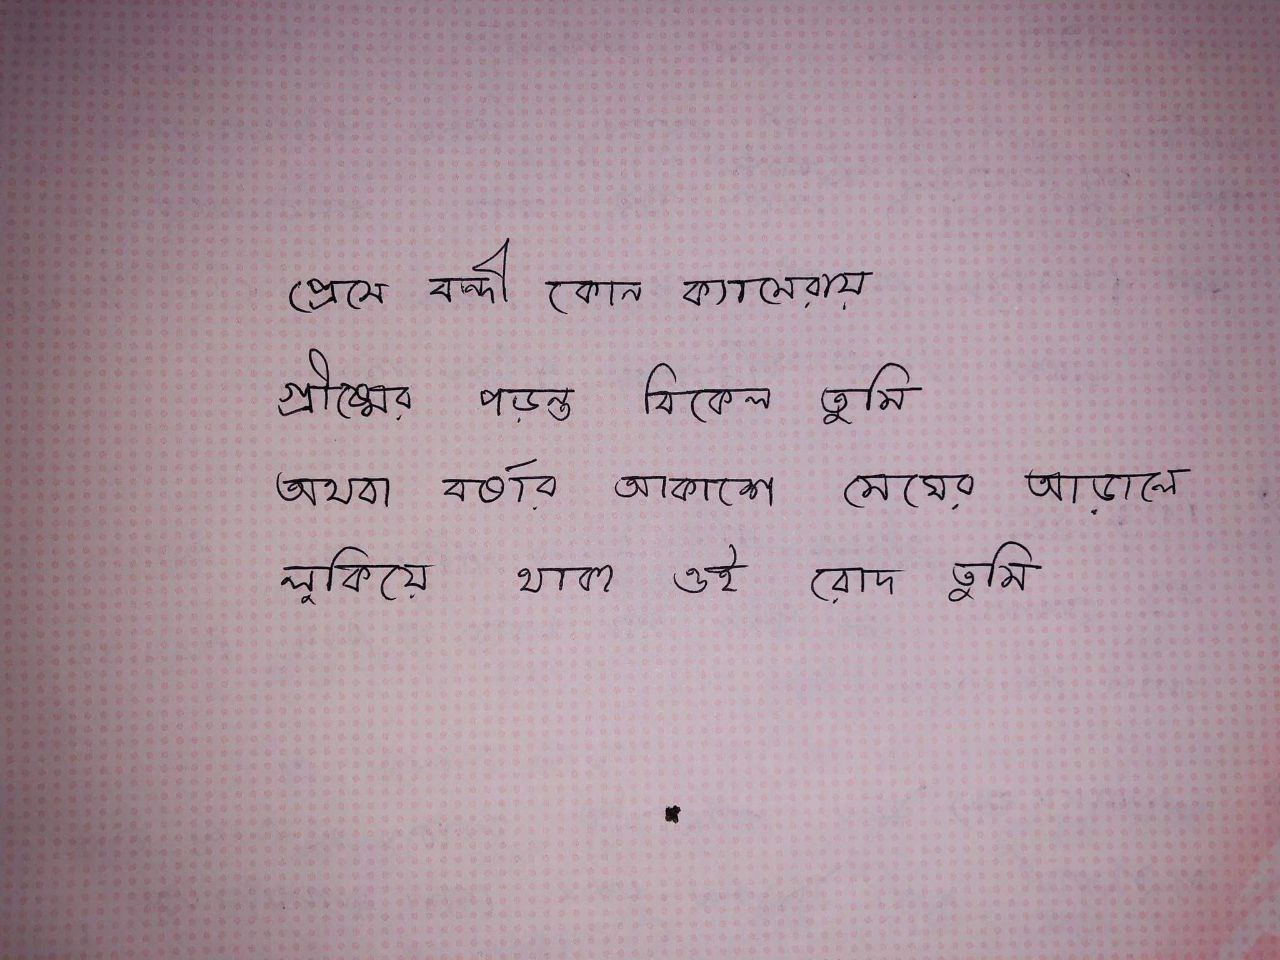 প্রেমে বন্দী কোন ক্যামেরায়
গ্রীষ্মের পড়ন্ত বিকেল তুমি
অথবা বর্ষার আকাশে মেঘের আড়ালে
লুকিয়ে থাকা ওই রোদ তুমি